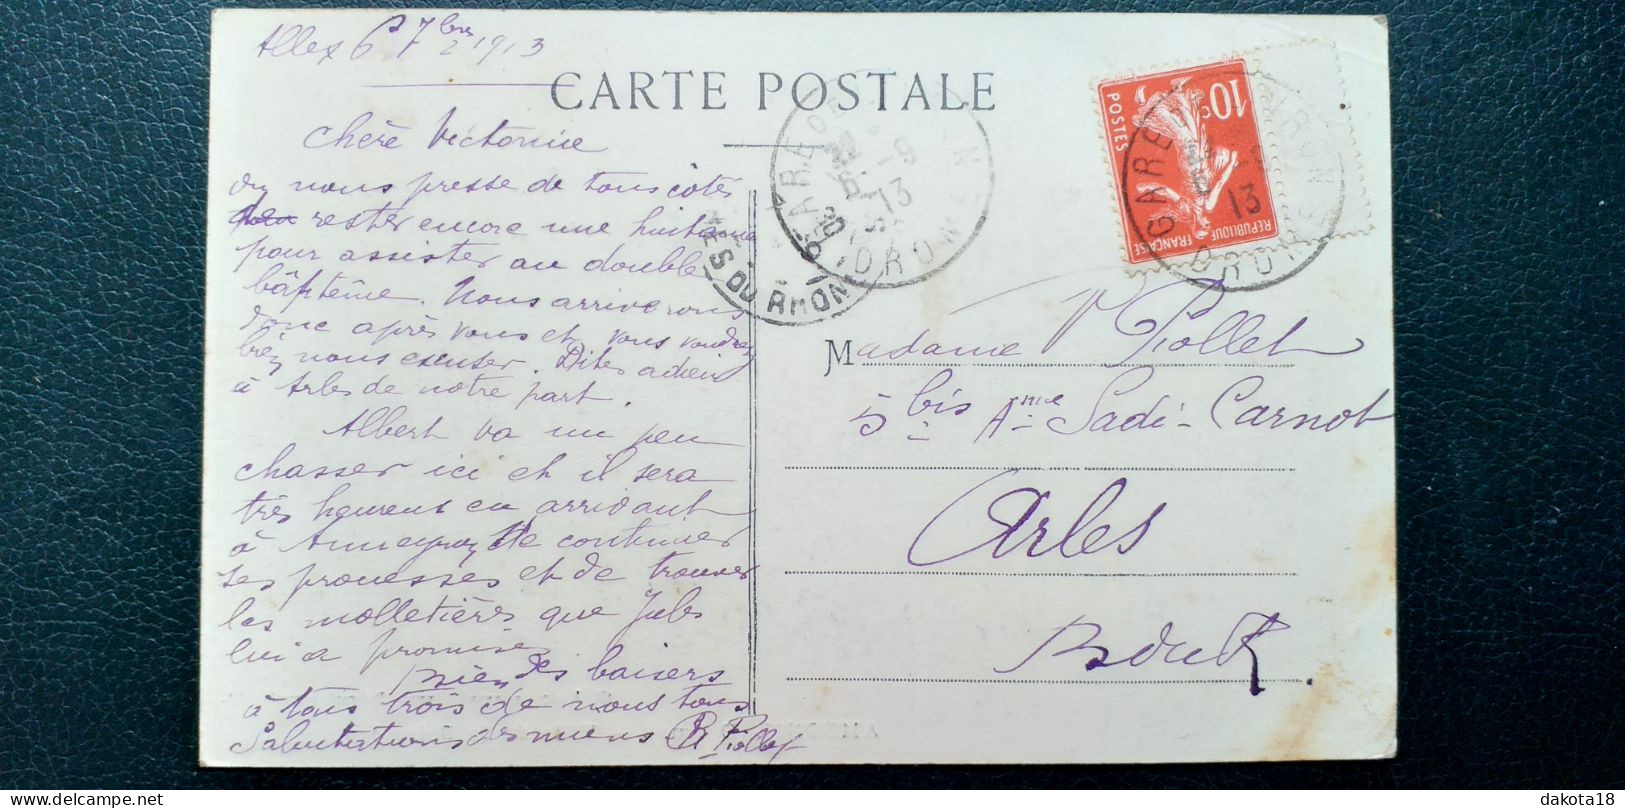 Allex 6 7bre 1913
CARTE POSTALE
Chère Victorine
on nous presse de tous côtés
rester encore une huitaine
pour assister au double
bâptême. Nous arriverons
donc après vous et vous voudrez
bien nous excuser. Dites adieu
à Arles de notre part.
Albert va un peu
chasser ici et il sera
très heureux en arrivant
à Anneyron de continuer
ses prouesses et de trouver
les molletières que Jules
lui a promise
Bien des baisers
à tous trois de nous tous
Salutations des miens R Piollet
Madame V Piollet
5 bis Anue Sadi-Carnot
Arles
Bouc R
10c
POSTES
REPUBLIQUE FRANÇAISE
GARE DE
DROME
13
GARE
DROME
-9
13
ES DU RHONE
dakota18